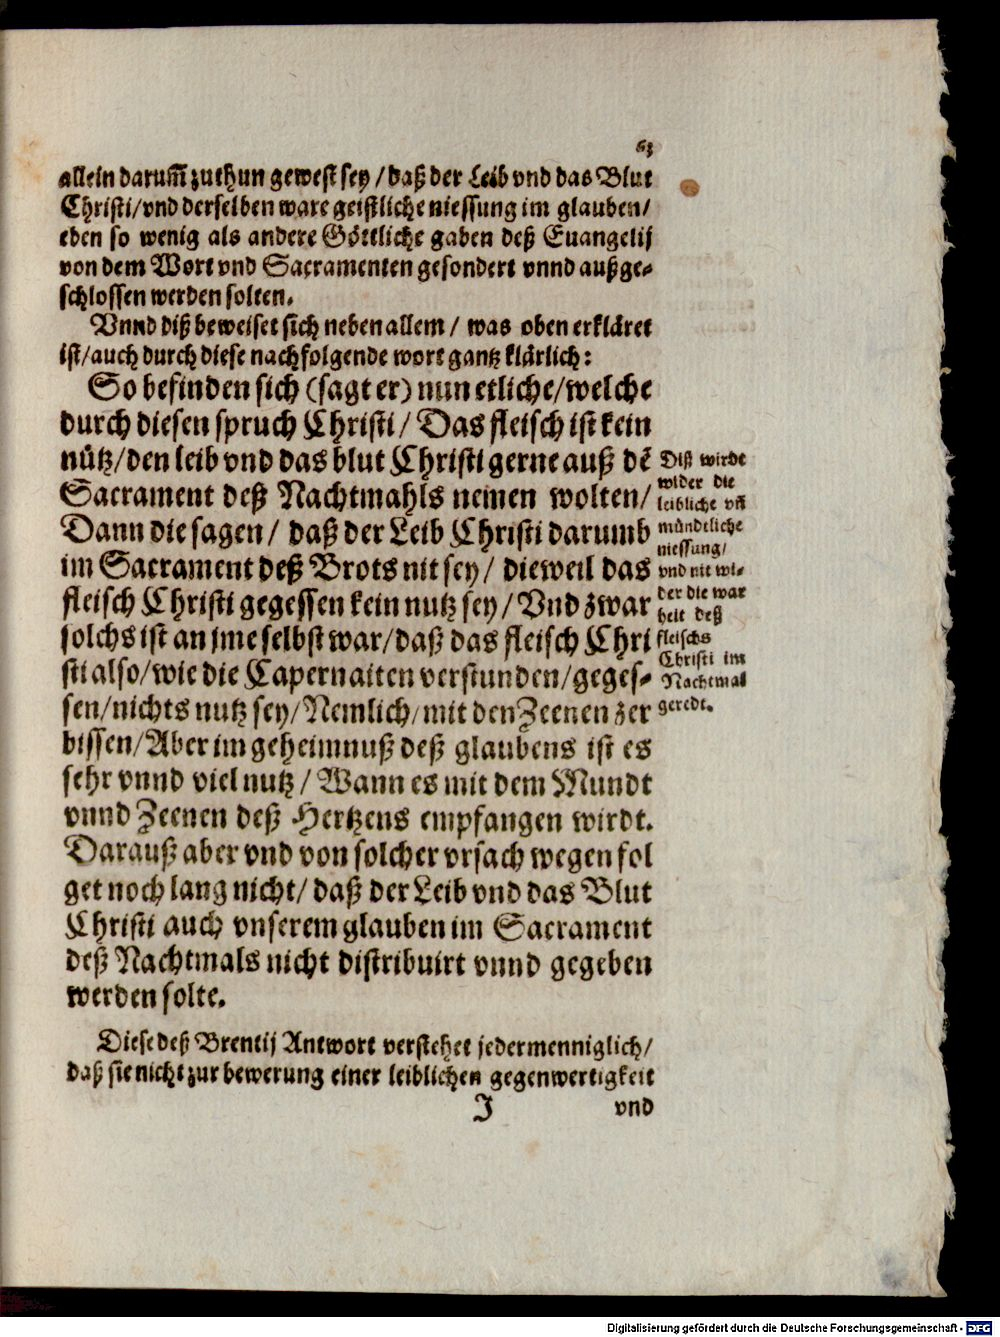 63
allein darum̃ zuthun gewest sey / daß der Leib vnd das Blut
Christi/vnd derselben ware geistliche niessung im glauben/
eben so wenig als andere Göttliche gaben deß Euangelij
von dem Wort vnd Sacramenten gesondert vnnd außge-
schlossen werden solten.
Vnnd diß beweiset sich neben allem / was oben erkläret
ist/auch durch diese nachfolgende wort gantz klärlich:
So befinden sich (sagt er) nun etliche/welche
durch diesen spruch Christi/ Das fleisch ist kein
nütz/den leib vnd das blut Christi gerne auß dẽ
Sacrament deß Nachtmahls nemen wolten/
Dann die sagen/ daß der Leib Christi darumb
im Sacrament deß Brots nit sey/ dieweil das
fleisch Christi gegessen kein nutz sey/Vnd zwar
solchs ist an jme selbst war/daß das fleisch Chri
sti also/wie die Capernaiten verstunden/geges-
sen/nichts nutz sey/Nemlich/mit den Zeenen zer
bissen/Aber im geheimnuß deß glaubens ist es
sehr vnnd viel nutz/ Wann es mit dem Mundt
vnnd Zeenen deß Hertzens empfangen wirdt.
Darauß aber vnd von solcher vrsach wegen fol
get noch lang nicht/ daß der Leib vnd das Blut
Christi auch vnserem glauben im Sacrament
deß Nachtmals nicht distribuirt vnnd gegeben
werden solte.
Diß wirdt
wider die
leibliche vñ
mündtliche
niessung/
vnd nit wi-
der die war
heit deß
fleischs
Christi im
Nachtmal
geredt.
Diese deß Brentij Antwort verstehet jedermenniglich/
daß sie nicht zur bewerung einer leiblichen gegenwertigkeit
J vnd
Digitalisierung gefördert durch die Deutsche Forschungsgemeinschaft - DFG